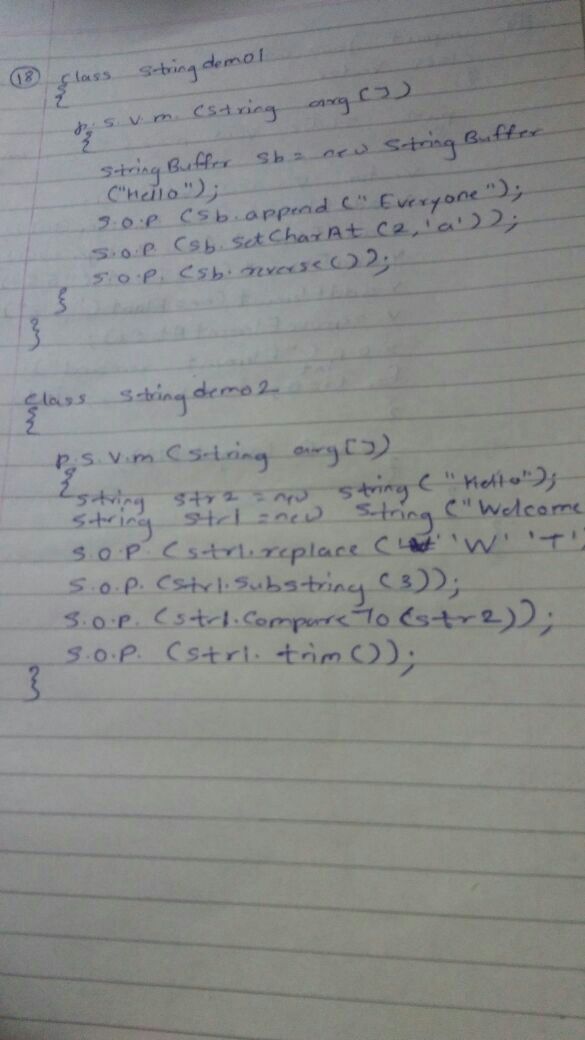 18 class stringdemo1
{
p.s.v.m. (string arg [])
{
StringBuffer sb = new StringBuffer
("Hello");
S.O.P (sb.append (" Everyone");
S.O.P (sb.setCharAt (2,'a'));
S.O.P. (sb.reverse());
}
}
class stringdemo2
{
p.s.v.m (string arg[])
{
string str2 = new string ("Hello");
string str1 = new string ("Welcome
S.O.P. (str1.replace ( 'W' 'T'
S.O.P. (str1.substring (3));
S.O.P. (str1.compareTo (str2));
S.O.P. (str1.trim());
}